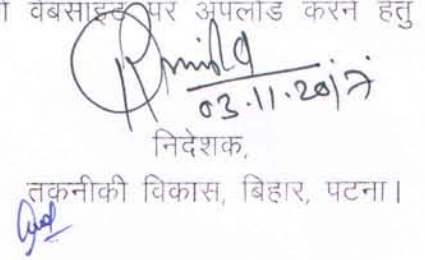 वेबसाइट पर अपलोड करने हेतु
03.11.2017
निदेशक,
तकनीकी विकास, बिहार, पटना।